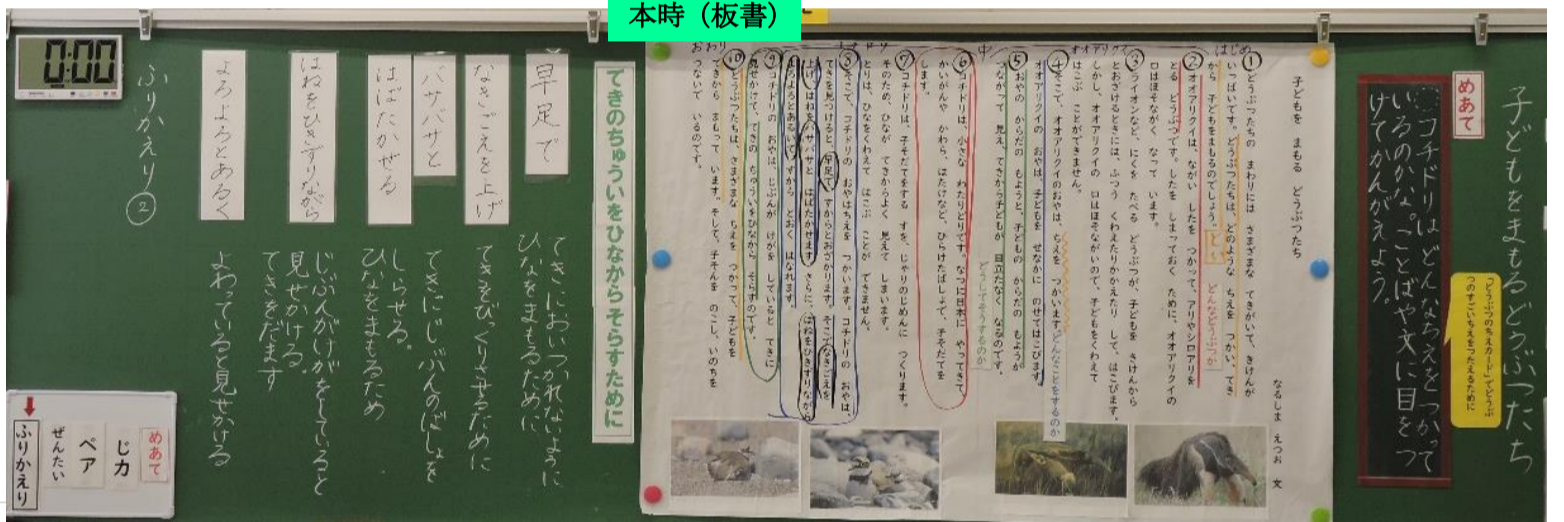 本時（板書）
子どもをまもるどうぶつたち
めあて
コチドリはどんなちえをつかって
いるのかな。ことばや文に目をつ
けてかんがえよう。
「どうぶつのちえカード」でどうぶ
つのすごいちえをつたえるために
子どもを まもる どうぶつたち
なるしま えつお 文
はじめ
①どうぶつたちの まわりには さまざまな てきがいて、きけんが
いっぱいです。どうぶつたちは、どのような ちえを つかい、てき
から 子どもをまもるのでしょう。
どんなどうぶつか
②オオアリクイは、ながい したを つかって、アリやシロアリを
とる どうぶつです。したを しまっておく ために、オオアリクイの
口はほそながく なって います。
③ライオンなど にくを たべる どうぶつが、子どもを きけんから
とおざけるときには、ふつう くわえたりかかえたり して、はこびます。
しかし、オオアリクイの 口はほそながいので、子どもをくわえて
はこぶ ことができません。
④そこで、オオアリクイのおやは、ちえを つかいます。
どんなことをするのか
オオアリクイの おやは、子どもを せなかに のせてはこびます。
⑤おやの からだの もようと、子どもの からだの もようが
つながって 見え、てきから子どもが 目立たなく なるのです。
どうしてそうするのか
中
⑥コチドリは、小さな わたりどりです。なつに日本に やってきて、
かいがんや かわら、はたけなど、ひらけたばしょで、子そだてを
します。
⑦コチドリは、子そだてをする すを、じゃりのじめんに つくります。
そのため、ひなが てきからよく 見えて しまいます。
とりは、ひなをくわえて はこぶ ことが できません。
⑧そこで、コチドリの おやはちえを つかいます。コチドリの おやは、
てきを見つけると、早足で、すからとおざかります。そこでなきごえを
上げ、はねをバサバサと はばたかせます。さらに、はねをひきずりながら
よろよろとあるいて、すから とおく はなれます。
⑨コチドリの おやは、じぶんが けがを していると てきに
見せかけて、てきの ちゅういをひなから そらすのです。
おわり
⑩どうぶつたちは、さまざまな ちえを つかって、子どもを
てきから まもって います。そして、子そんを のこし、いのちを
つないで いるのです。
てきのちゅういをひなからそらすために
早足で
てきにおいつかれないように
ひなをまもるために
なきごえを上げ
てきをびっくりさせるために
バサバサと
はばたかせる
てきにじぶんのばしょを
しらせる。
ひなをまもるため
はねをひきずりながら
じぶんがけがをしていると
見せかける。
てきをだます
よろよろとあるく
よわっていると見せかける
ふりかえり②
0:00
めあて
じ力
ペア
ぜんたい
ふりかえり